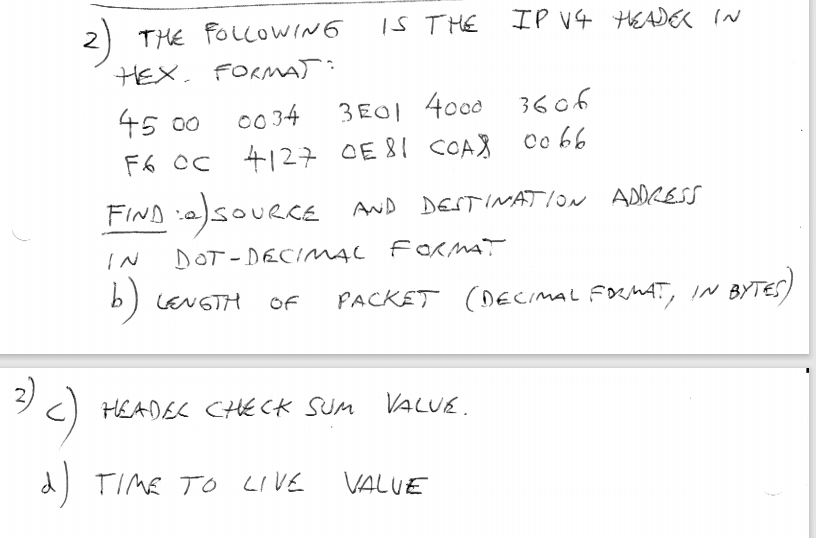 2) THE FOLLOWING IS THE IP V4 HEADER IN
HEX. FORMAT:
45 00 0034 3E01 4000 3606
F6 0C 4127 0E81 C0A8 0066
FIND :a) SOURCE AND DESTINATION ADDRESS
IN DOT-DECIMAL FORMAT
b) LENGTH OF PACKET (DECIMAL FORMAT, IN BYTES)
2) c) HEADER CHECK SUM VALUE.
d) TIME TO LIVE VALUE